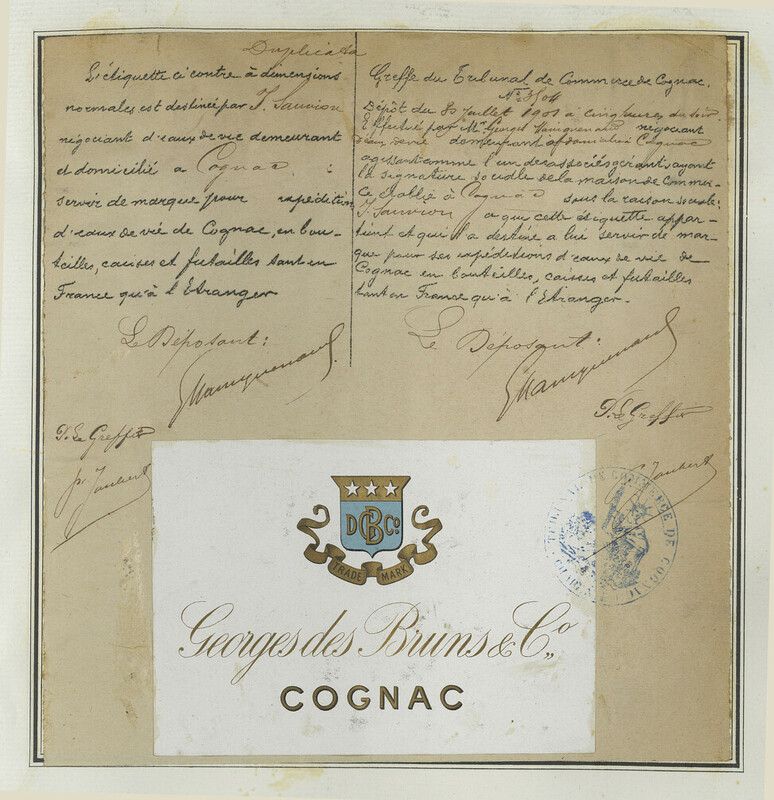 Duplicata
L'étiquette ci contre à dimensions
normales est destinée par J. Sauvion
négociant d'eaux de vie demeurant
et domicilié a Cognac, à
servir de marque pour expédition
d'eaux de vie de Cognac, en bou-
teilles, caisses et futailles tant en
France qu'à l'Etranger
Le Déposant:
P. Le Greffier
Joubert
Greffe du Tribunal de Commerce de Cognac.
No 3504
Dépôt du Juillet 1901 à cinq heures du soir
Effectué par Mr Georges négociant
d'eaux de vie demeurant et domicilié à Cognac
agissant comme l'un des associés gérants, ayant
la signature sociale de la maison de Commer-
ce établie à Cognac sous la raison sociale:
J. Sauvion a que cette étiquette appar-
tient et qu'il a destiné a lui servir de mar-
que pour ses expéditions d'eaux de vie de
Cognac en bouteilles, caisses et futailles
tant en France qu'à l'Etranger.
Le Déposant:
P. Le Greffier
Joubert
TRIBUNAL DE COMMERCE DE COGNAC
D B Co
TRADE MARK
Georges des Bruns & Co
COGNAC